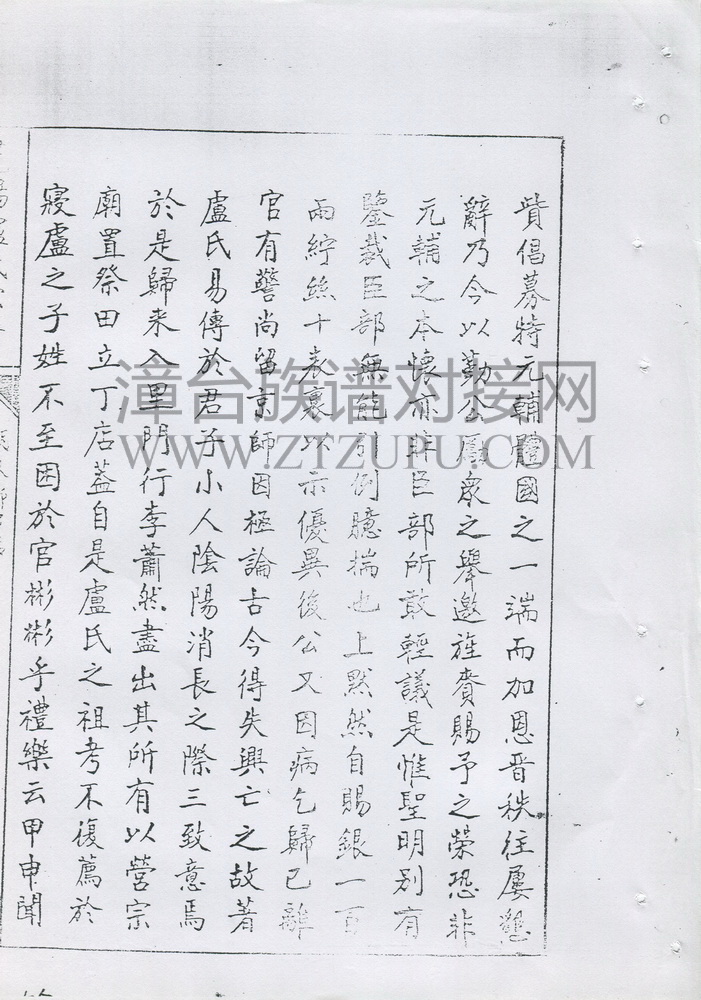 貲倡募特元輔體國之一端而加恩晋秩往屢懇
辭乃今以勤公勵衆之舉邀旌賚賜予之榮恐非
元輔之本懷亦非臣部所敢輕議是惟聖明别有
鑒裁臣部無能引例臆揣也上默然自賜銀一百
兩紵絲十表裏以示優異後公又因病乞歸已離
官有警尚留京師因極論古今得失興亡之故著
盧氏易傳於君子小人陰陽消長之際三致意焉
於是歸来入里門行李蕭然盡出其所有以營宗
廟置祭田立丁店蓋自是盧氏之祖考不復薦於
寢盧之子姓不至困於官彬彬乎禮樂云甲申聞
漳台族谱对接网
WWW.ZTZUPU.COM